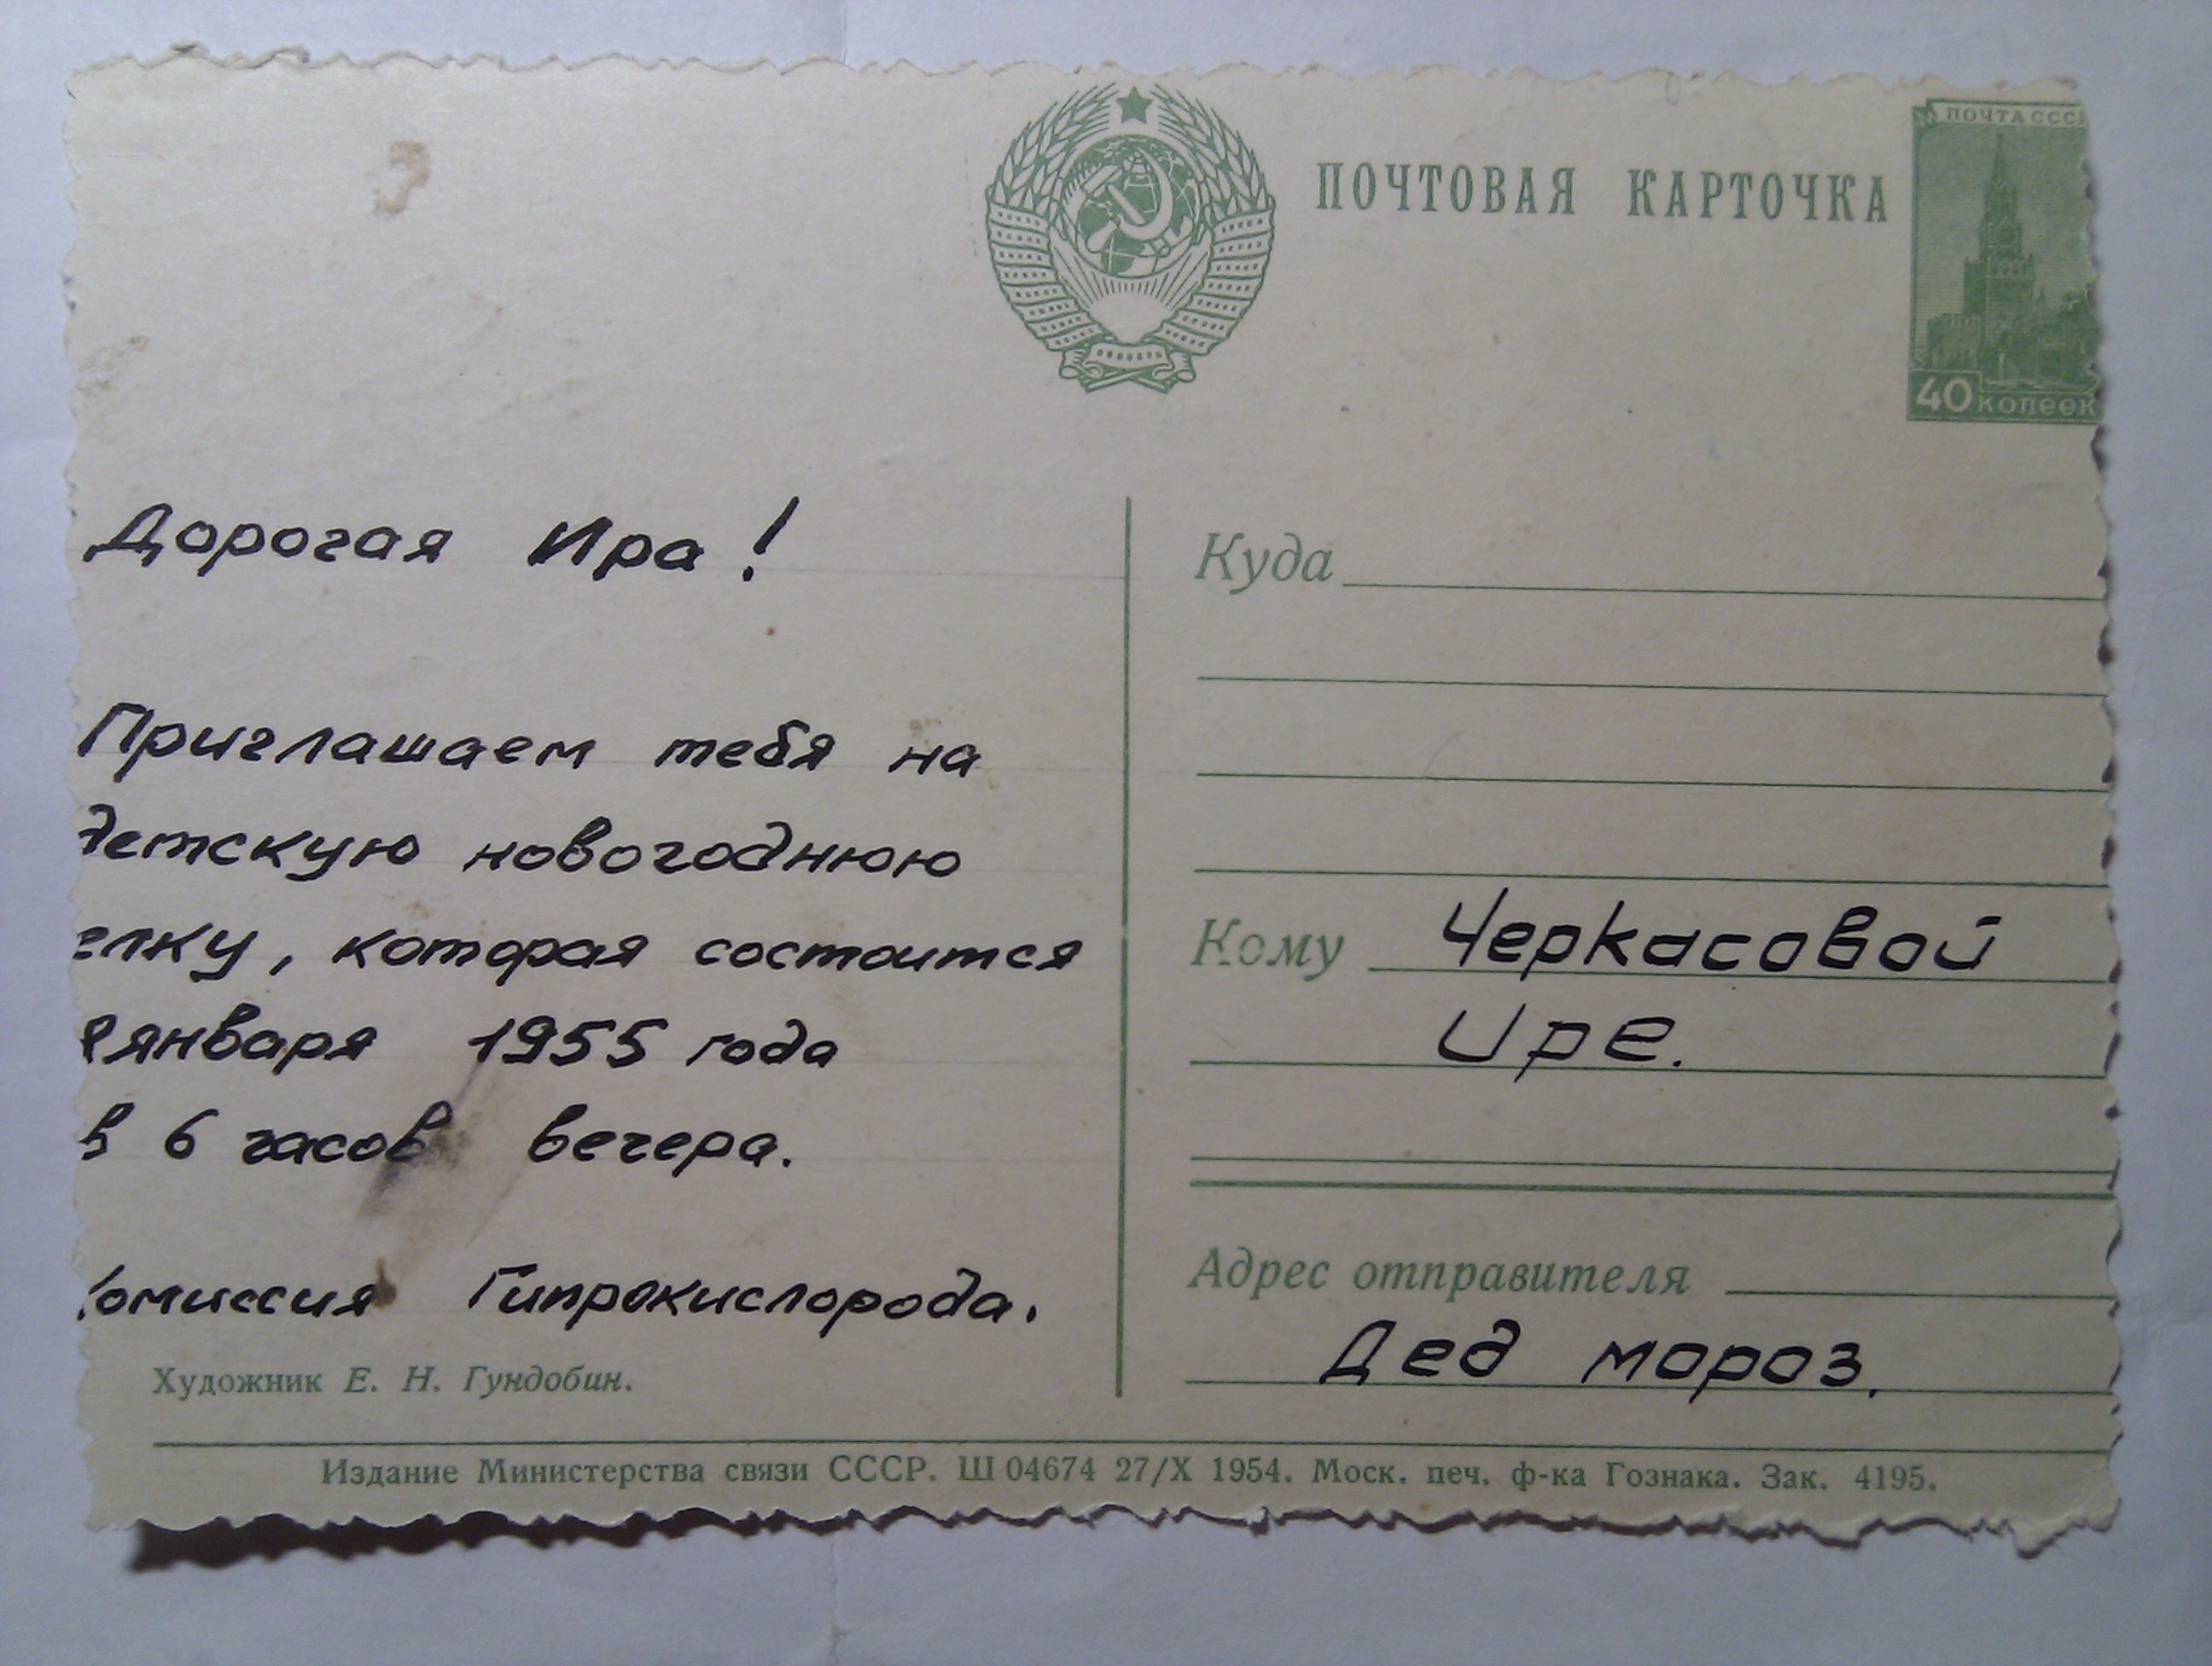 ПОЧТОВАЯ КАРТОЧКА
ПОЧТА ССС
40 копеек
Дорогая Ира!
Приглашаем тебя на
детскую новогоднюю
елку, которая состоится
января 1955 года
в 6 часов вечера.
Комиссия Гипрокислорода.
Художник Е. Н. Гундобин.
Куда
Кому Черкасовой
Ире.
Адрес отправителя
Дед мороз.
Издание Министерства связи СССР. Ш 04674 27/X 1954. Моск. печ. ф-ка Гознака. Зак. 4195.